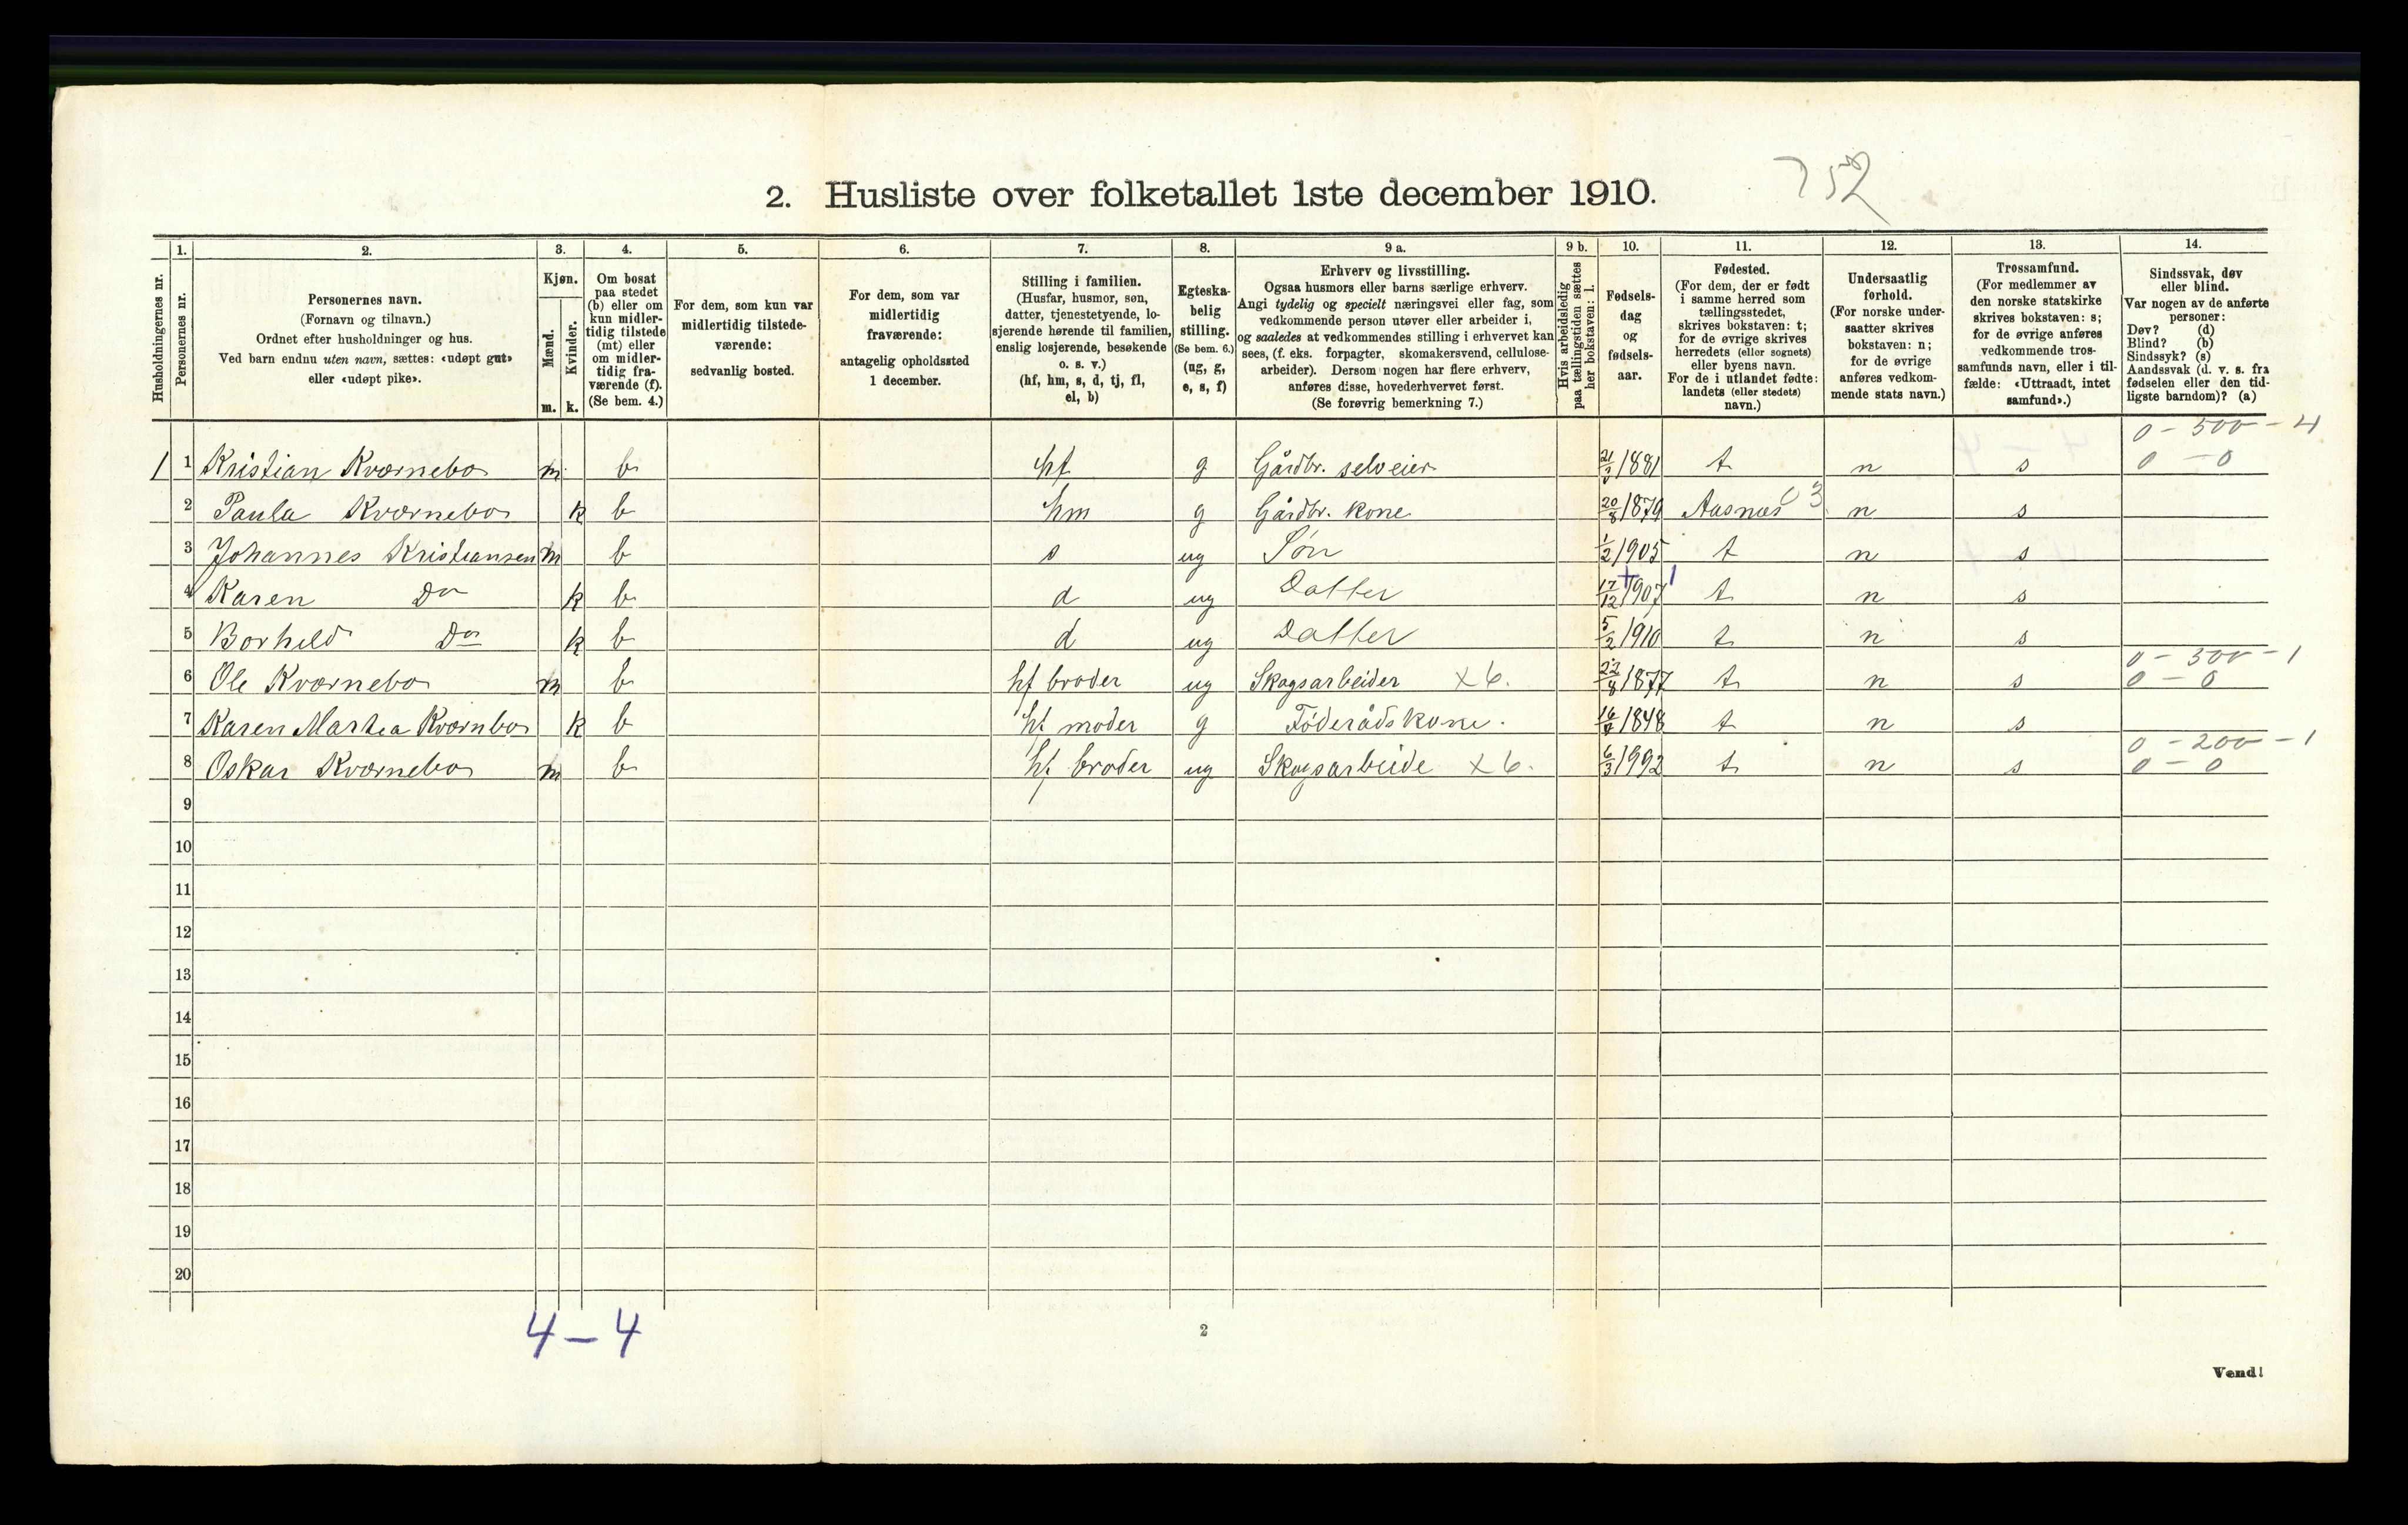 2. Husliste over folketallet 1ste december 1910.
Husholdningernes nr.
1.
Personernes nr.
2.
Personernes navn.
(Fornavn og tilnavn.)
Ordnet efter husholdninger og hus.
Ved barn endnu uten navn, sættes: «udøpt gut»
eller «udøpt pike».
3.
Kjøn.
Mænd.
Kvinder.
m. k.
4.
Om bosat
paa stedet
(b) eller om
kun midler-
tidig tilstede
(mt) eller
om midler-
tidig fra-
værende (f).
(Se bem. 4.)
5.
For dem, som kun var
midlertidig tilstede-
værende:
sedvanlig bosted.
6.
For dem, som var
midlertidig
fraværende:
antagelig opholdssted
1 december.
7.
Stilling i familien.
(Husfar, husmor, søn,
datter, tjenestetyende, lo-
sjerende hørende til familien,
enslig losjerende, besøkende
o. s. v.)
(hf, hm, s, d, tj, fl,
el, b)
8.
Egteska-
belig
stilling.
(Se bem. 6.)
(ug, g,
e, s, f)
9 a.
Erhverv og livsstilling.
Ogsaa husmors eller barns særlige erhverv.
Angi tydelig og specielt næringsvei eller fag, som
vedkommende person utøver eller arbeider i,
og saaledes at vedkommendes stilling i erhvervet kan
sees, (f. eks. forpagter, skomakersvend, cellulose-
arbeider). Dersom nogen har flere erhverv,
anføres disse, hovederhvervet først.
(Se forøvrig bemerkning 7.)
9 b.
Hvis arbeidsledig
paa tællingstiden sættes
her bokstaven: l.
10.
Fødsels-
dag
og
fødsels-
aar.
11.
Fødested.
(For dem, der er født
i samme herred som
tællingsstedet,
skrives bokstaven: t;
for de øvrige skrives
herredets (eller sognets)
eller byens navn.
For de i utlandet fødte:
landets (eller stedets)
navn.)
12.
Undersaatlig
forhold.
(For norske under-
saatter skrives
bokstaven: n;
for de øvrige
anføres vedkom-
mende stats navn.)
13.
Trossamfund.
(For medlemmer av
den norske statskirke
skrives bokstaven: s;
for de øvrige anføres
vedkommende tros-
samfunds navn, eller i til-
fælde: «Uttraadt, intet
samfund».)
14.
Sindssvak, døv
eller blind.
Var nogen av de anførte
personer:
Døv? (d)
Blind? (b)
Sindssyk? (s)
Aandssvak (d. v. s. fra
fødselen eller den tid-
ligste barndom)? (a)
0 - 500 - 4
1 1 Kristian Kværnebo m. b. hf g Gårdbr. selveier 1881 t n s 0 - 0
2 Paula Kværnebo k b hm g Gårdbr. kone 20/8 1879 Aasnæs 03 n s
3 Johannes Kristiansen m b s ug Søn 1/2 1905 t n s
4 Karen Do k b d ug Datter 17/12 1907 t n s
5 Borhild Do k b d ug Datter 5/2 1910 t n s
0 - 300 - 1
6 Ole Kværnebo m b hf broder ug Skogsarbeider X6. 22/8 1877 t n s 0 - 0
7 Karen Martea Kværnbo k b hf moder g Føderådskone. 1848 t n s
0 - 200 - 1
8 Oskar Kværnebo m b hf broder ug Skogsarbeide X6. 6/3 1992 t n s 0 - 0
9
10
11
12
13
14
15
16
17
18
19
20
4 - 4
2
Vend!